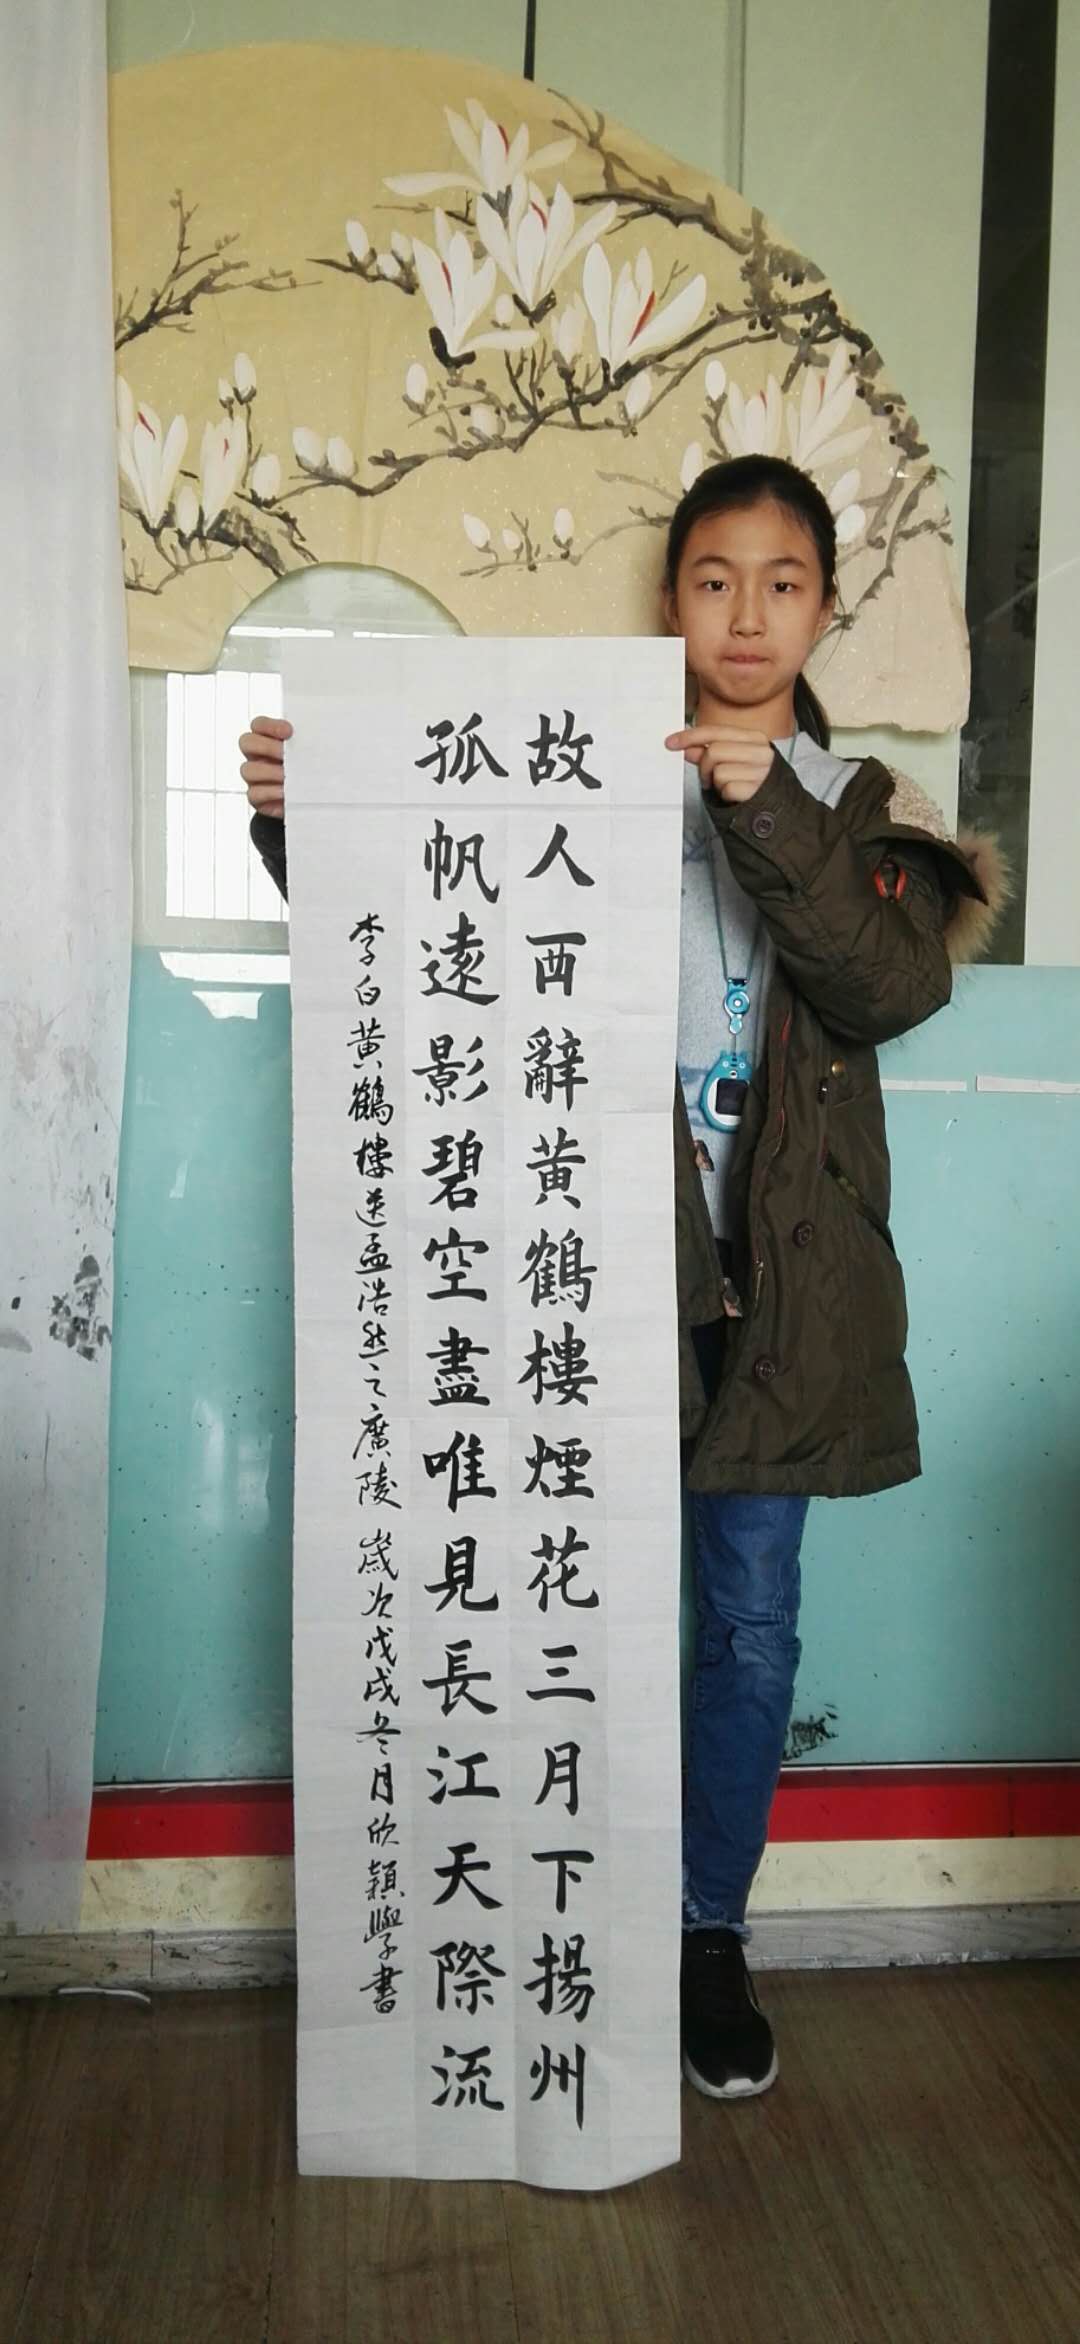 故人西辭黄鶴樓煙花三月下揚州
孤帆遠影碧空盡唯見長江天際流
李白黄鶴樓送孟浩然之廣陵 歲次戊戌冬月欣穎學書